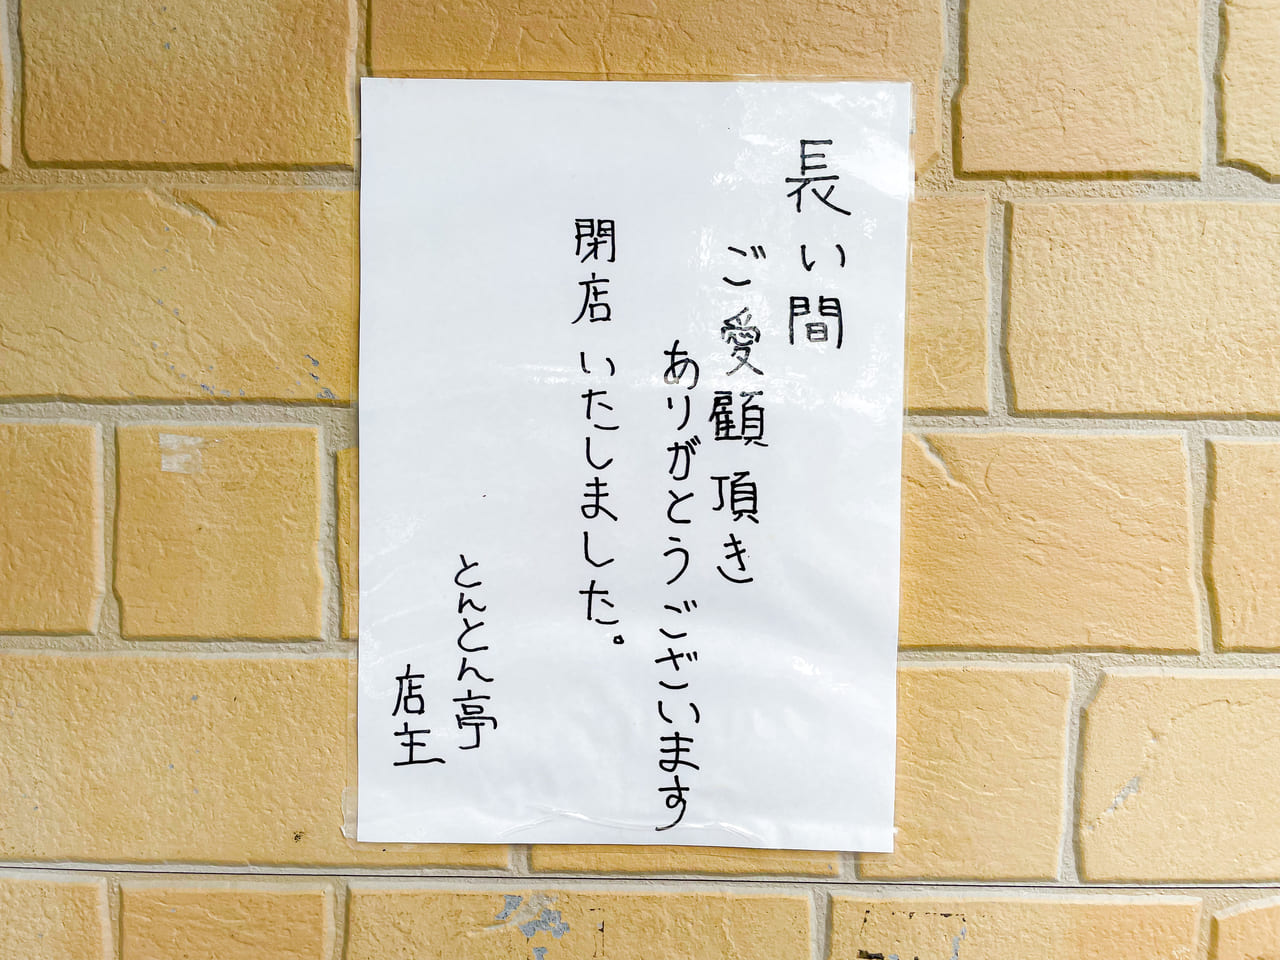 長い間
ご愛顧頂き
ありがとうございます
閉店いたしました。
とんとん亭
店主